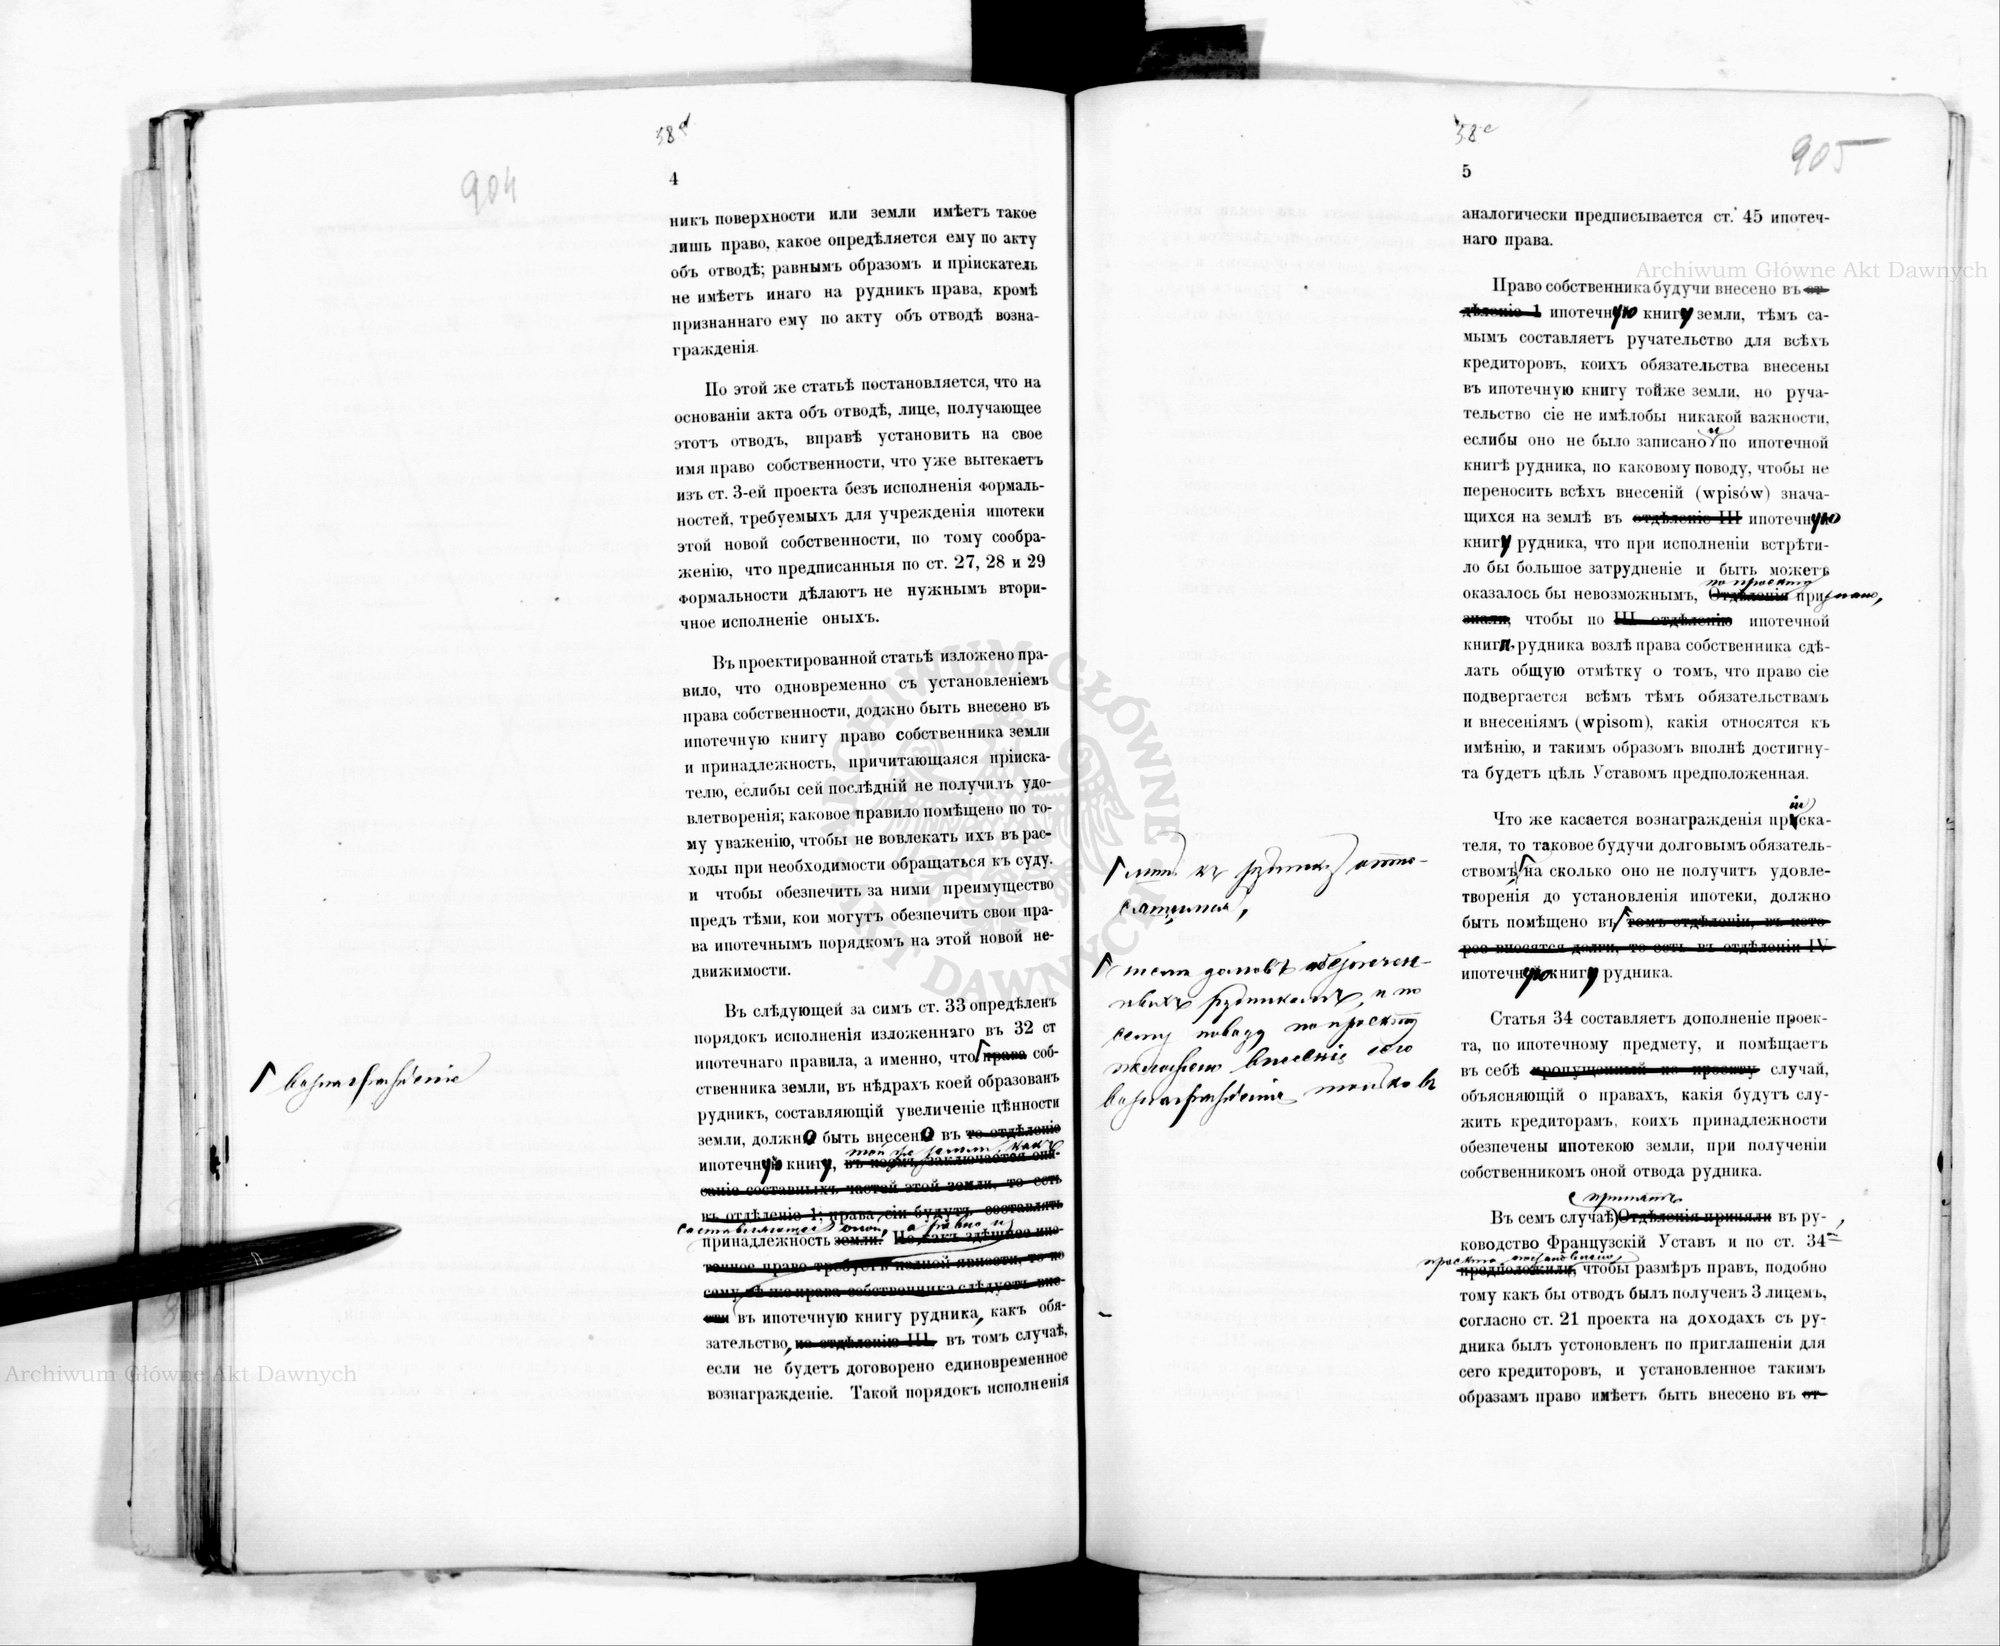 58d
904
4
никъ поверхности или земли имѣетъ такое
лишь право, какое опредѣляется ему по акту
объ отводѣ; равнымъ образомъ и пріискатель
не имѣетъ инаго на рудникъ права, кромѣ
признаннаго ему по акту объ отводѣ возна-
гражденія.
По этой же статьѣ постановляется, что на
основаніи акта объ отводѣ, лице, получающее
этотъ отводъ, вправѣ установить на свое
имя право собственности, что уже вытекаетъ
изъ ст. 3-ей проекта безъ исполненія формаль-
ностей, требуемыхъ для учрежденія ипотеки
этой новой собственности, по тому сообра-
женію, что предписанныя по ст. 27, 28 и 29
формальности дѣлаютъ не нужнымъ втори-
чное исполненіе оныхъ.
Въ проектированной статьѣ изложено пра-
вило, что одновременно съ установленіемъ
права собственности, доджно быть внесено въ
ипотечную книгу право собственника земли
и принадлежность, причитающаяся пріиска-
телю, еслибы сей послѣдній не получилъ удо-
влетворенія; каковое правило помѣщено по то-
му уваженію, чтобы не вовлекать ихъ въ рас-
ходы при необходимости обращаться къ суду.
и чтобы обезпечить за ними преимущество
предъ тѣми, кои могутъ обезпечить свои пра-
ва ипотечнымъ порядкомъ на этой новой не-
движимости.
Въ слѣдующей за симъ ст. 33 опредѣленъ
порядокъ исполненія изложеннаго въ 32 ст
ипотечнаго правила, а именно, что права соб-
вознагражденіе
ственника земли, въ нѣдрахъ коей образованъ
рудникъ, составляющій увеличеніе цѣнности
земли, должно быть внесено въ то отдѣленіе
той же земли, какъ
ипотечную книгу, въ коемъ заключается опи-
саніе составныхъ частей этой земли, то есть
въ отдѣленіе 1; права сіи будутъ составлять
составляющее оной, а равно и
принадлежность земли. Но какъ здѣшнее ипо-
течное право требуетъ полной явности, то по
сему тѣ же права собственника слѣдуетъ вне-
сти въ ипотечную книгу рудника, какъ обя-
зательство, по отдѣленію III, въ томъ случаѣ,
если не будетъ договорено единовременное
вознагражденіе. Такой порядокъ исполненія
58e
905
5
аналогически предписывается ст. 45 ипотеч-
наго права.
Право собственника будучи внесено въ от-
дѣленіе 1 ипотечную книгу земли, тѣмъ са-
мымъ составляетъ ручательство для всѣхъ
кредиторовъ, коихъ обязательства внесены
въ ипотечную книгу тойже земли, но руча-
тельство сіе не имѣлобы никакой важности,
еслибы оно не было записано и по ипотечной
книгѣ рудника, по каковому поводу, чтобы не
переносить всѣхъ внесеній (wpisów) знача-
щихся на землѣ въ отдѣленіе III ипотечную
книгу рудника, что при исполненіи встрѣти-
ло бы большое затрудненіе и быть можетъ
по проекту
оказалось бы невозможнымъ, Отдѣленія признано,
знали, чтобы по III отдѣленію ипотечной
книгѣ рудника возлѣ права собственника сдѣ-
лать общую отмѣтку о томъ, что право сіе
подвергается всѣмъ тѣмъ обязательствамъ
и внесеніямъ (wpisom), какія относятся къ
имѣнію, и такимъ образомъ вполнѣ достигну-
та будетъ цѣль Уставомъ предположенная.
Что же касается вознагражденія пріиска-
теля, то таковое будучи долговымъ обязатель-
ствомъ на сколько оно не получитъ удовле-
творенія до установленія ипотеки, должно
быть помѣщено въ томъ отдѣленіи, въ кото-
рое вносятся долги, то есть въ отдѣленіи IV
ипотечную книгу рудника.
къ руднику отно-
сящимся,
обезпечен-
ныхъ рудникомъ, и по
сему поводу по проекту
внесеніе сего
вознагражденія только въ
Статья 34 составляетъ дополненіе проек-
та, по ипотечному предмету, и помѣщаетъ
въ себѣ пропущенный по проекту случай,
объясняющій о правахъ, какія будутъ слу-
жить кредиторамъ, коихъ принадлежности
обезпечены ипотекою земли, при полученіи
собственникомъ оной отвода рудника.
принятъ
Въ семъ случаѣ Отдѣленія приняли въ ру-
ководство Французскій Уставъ и по ст. 34
проекта постановлено
предположили, чтобы размѣръ правъ, подобно
тому какъ бы отводъ былъ полученъ 3 лицемъ,
согласно ст. 21 проекта на доходахъ съ ру-
дника былъ устоновленъ по приглашеніи для
сего кредиторовъ, и установленное такимъ
образамъ право имѣетъ быть внесено въ от-
Archiwum Główne Akt Dawnych
Archiwum Główne Akt Dawnych
ARCHIWUM GŁÓWNE AKT DAWNYCH